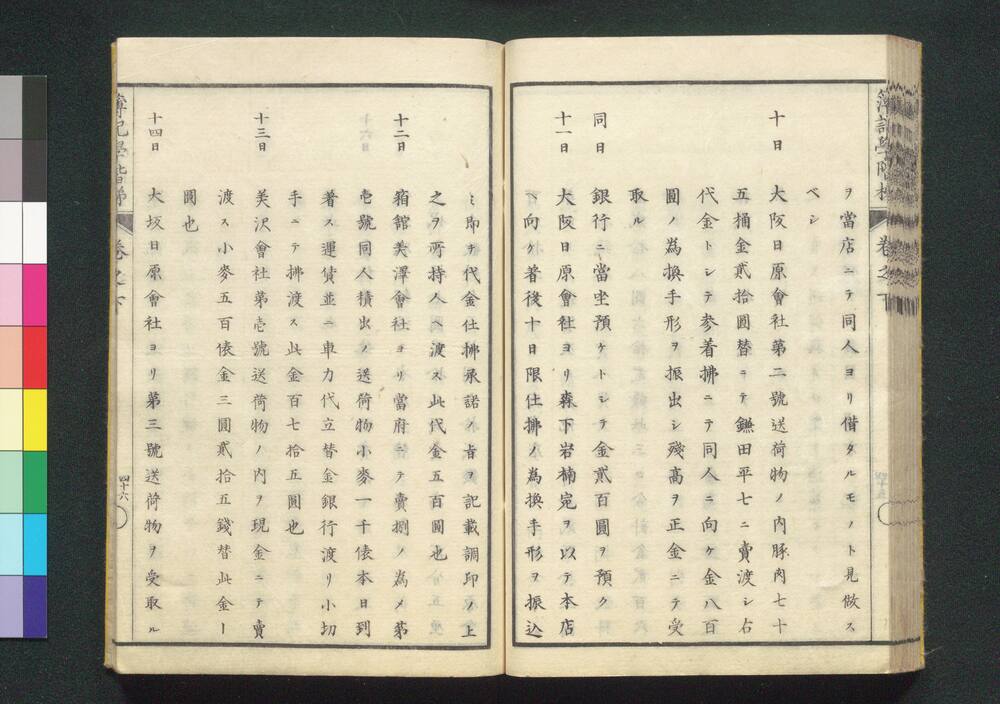 簿記學階梯 卷之下
ヲ當店ニテ同人ヨリ借タルモノト見做ス
ベシ
十日 大阪日原會社第二號送荷物ノ内豚肉七十
五桶金貳拾圓替ニテ鎌田平七ニ賣渡シ右
代金トシテ參着拂ニテ同人ニ向ケ金八百
圓ノ為換手形ヲ振出シ殘高ヲ正金ニテ受
取ル
同日 銀行ニ當坐預ケトシテ金貳百圓ヲ預ク
十一日 大阪日原會社ヨリ森下岩楠宛ヲ以テ本店
ヘ向ケ著後十日限仕拂ノ為換手形ヲ振込
ミ即チ代金仕拂承諾ノ旨ヲ記載調印ノ上
之ヲ所持人ヘ渡ス此代金五百圓也
十二日 箱館美澤會社ヨリ當府ニテ賣捌ノ為メ第
壱號同人積出ノ送荷物小麥一千俵本日到
著ス運賃並ニ車力代立替金銀行渡リ小切
手ニテ拂渡ス此金百七拾五圓也
十三日 美沢會社第壱號送荷物ノ内ヲ現金ニテ賣
渡ス小麥五百俵金三圓貳拾五錢替此金ー
圓也
十四日 大坂日原會社ヨリ第三號送荷物ヲ受取ル
簿記學階梯 卷之下 四十六